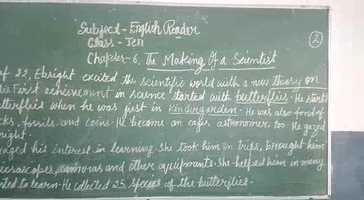 Subject - English Reader
Class - Ten
Chapter - 6, The Making Of a Scientist
2
of 22, Ebright excited the scientific world with a new theory on
first achievement in science started with butterflies. He start
butterflies when he was just in Kindergarden. He was also fond of
fossils and coins. He become an eager astronomer too He gazed
night.
his interest in learning. She took him on trips, brought him
cameras and other equipments. She helped him in many
to learn. He collected 25 Species of the butterflies.